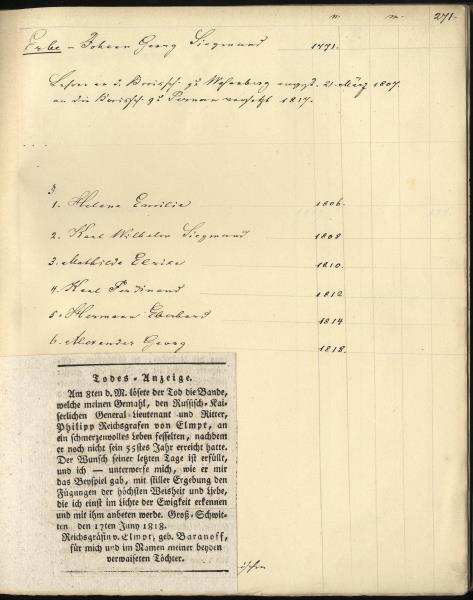 271.
Erbe - Johann Georg Siegmund 1771.
Lehrer an d. Kreissch. zu Wesenberg angest. 21. März 1807.
an die Kreissch. zu Pernau versetzt 1817.
1. Helene Emilie 1806.
2. Karl Wilhelm Siegmund 1808
3. Mathilde Elvire 1810.
4. Karl Ferdinand 1812
5. Hermann Eberhard 1814
6. Alexander Georg 1818.
Todes-Anzeige.
Am 8ten d. M. lösete der Tod die Bande,
welche meinen Gemahl, den Russisch-Kai-
serlichen General-Lieutenant und Ritter,
Philipp Reichsgrafen von Elmpt, an
ein schmerzenvolles Leben fesselten, nachdem
er noch nicht sein 55stes Jahr erreicht hatte.
Der Wunsch seiner letzten Tage ist erfüllt,
und ich — unterwerfe mich, wie er mir
das Beyspiel gab, mit stiller Ergebung den
Fügungen der höchsten Weisheit und Liebe,
die ich einst im Lichte der Ewigkeit erkennen
und mit ihm anbeten werde. Groß-Schwit-
ten den 17ten Juny 1818.
Reichsgräfin v. Elmpt, geb. Baranoff,
für mich und im Namen meiner beyden
verwaiseten Töchter.